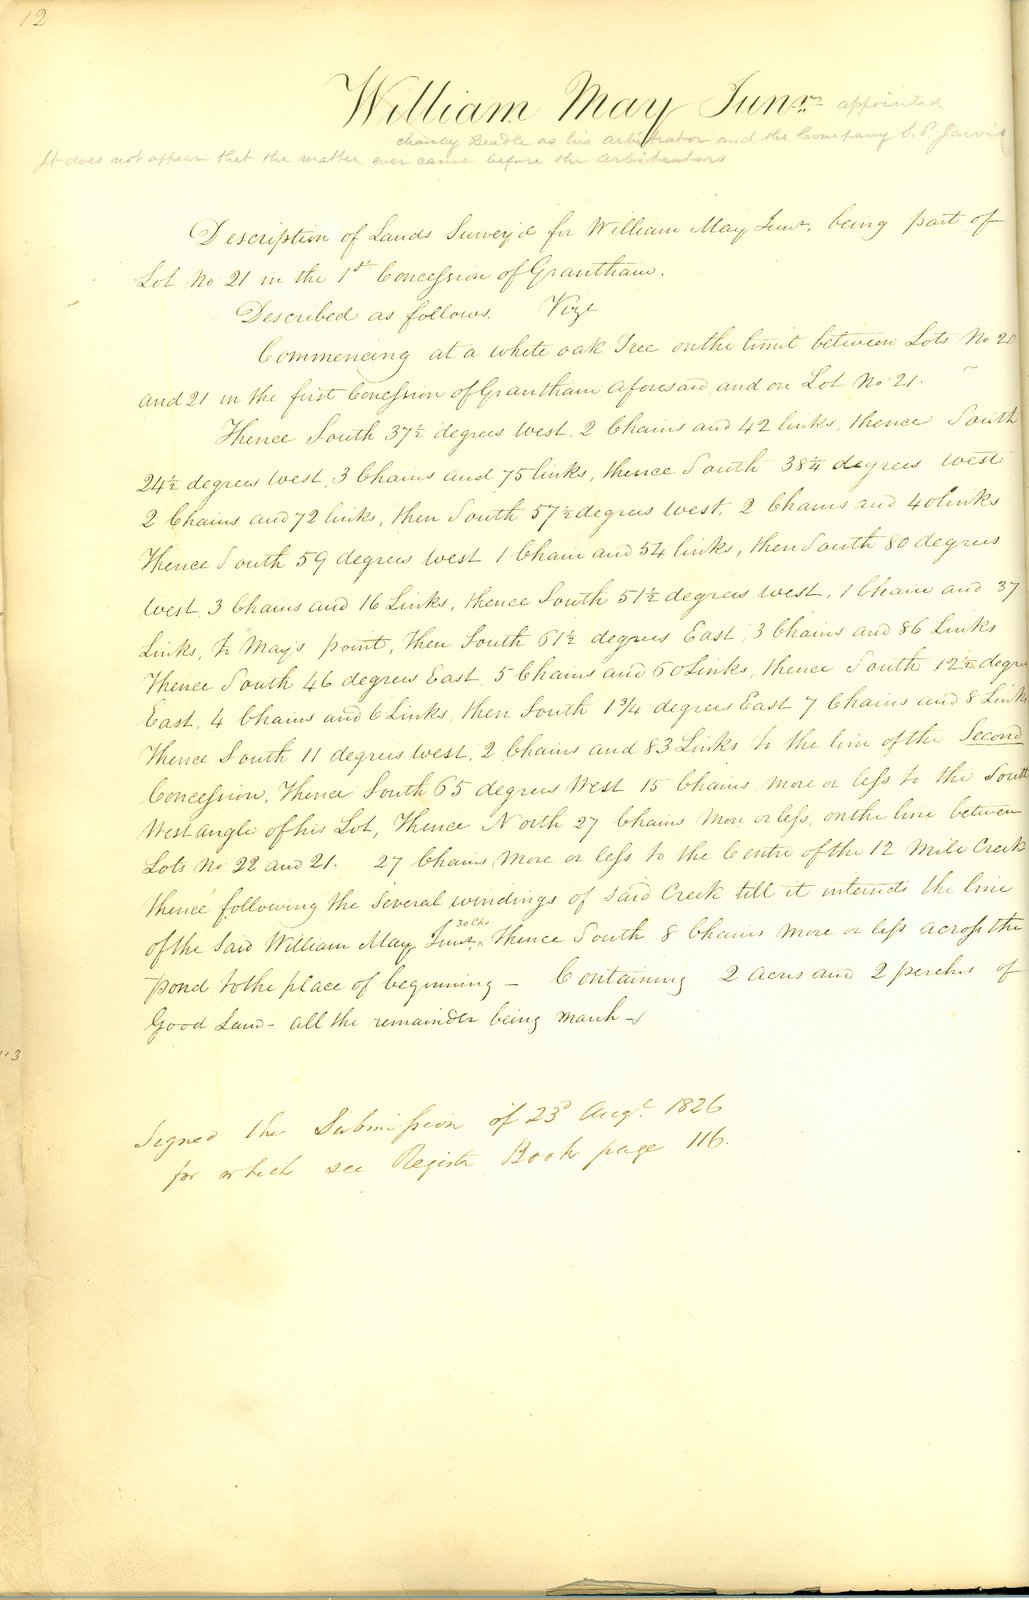 12
William May Junr. appointed
chancy Beadle as his arbitrator and the Company S. P. Jarvis
It does not appear that the matter ever came before the arbitrators
Description of Lands Survey'd for William May Junr. being part of
Lot No 21 in the 1st Concession of Grantham.
Described as follows. Vizt
Commencing at a white oak Tree on the limit between Lots No 20
and 21 in the first Concession of Grantham aforesaid and on Lot No 21.
Thence South 37½ degrees west, 2 Chains and 42 links, thence South
24½ degrees west, 3 Chains and 75 links, thence South 38¼ degrees west
2 Chains and 72 links, then South 57½ degrees west, 2 Chains and 40 links
Thence South 59 degrees west 1 Chain and 54 links, then South 80 degrees
west, 3 Chains and 16 Links, thence South 51½ degrees west, 1 Chain and 37
Links, to May's point, Then South 61½ degrees East, 3 Chains and 86 Links
Thence South 46 degrees East, 5 Chains and 60 Links, thence South 12½ degre
East, 4 Chains and 6 Links, then South 1¾ degrees East 7 Chains and 8 Links
Thence South 11 degrees west, 2 Chains and 83 Links to the line of the Second
Concession, Thence South 65 degrees West 15 Chains more or less to the South
West angle of his Lot, Thence North 27 Chains more or less, on the line between
Lots No 22 and 21. 27 Chains more or less to the Centre of the 12 Mile Creek
thence following the several windings of said Creek till it intersects the line
of the said William May Junr, 30 Chs Thence South 8 Chains more or less across the
pond to the place of beginning - Containing 2 acres and 2 perches of
Good Land - all the remainder being marsh -
Signed the Submission of 23d Augt 1826
for which see Register Book page 116.